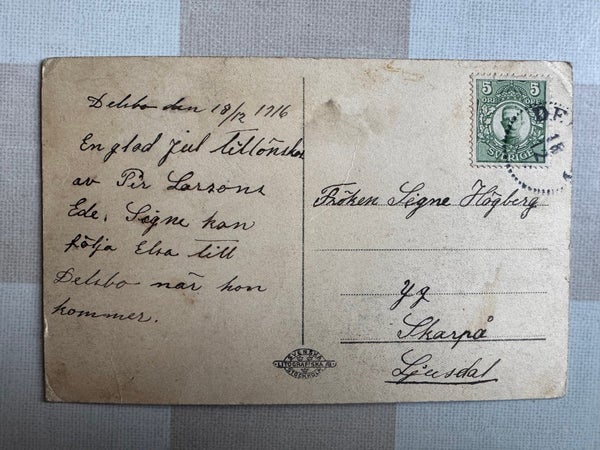 Delsbo den 18/12 1916
En glad Jul tillönskas
av Pir Larsons
Ede. Signe kan
följa Elsa till
Delsbo när hon
kommer.
5 5
ÖRE ÖRE
SVERIGE
DE
18
12
Fröken Signe Högberg
Yg
Skarpå
Ljusdal
SVENSKA
LITOGRAFISKA AB
STOCKHOLM